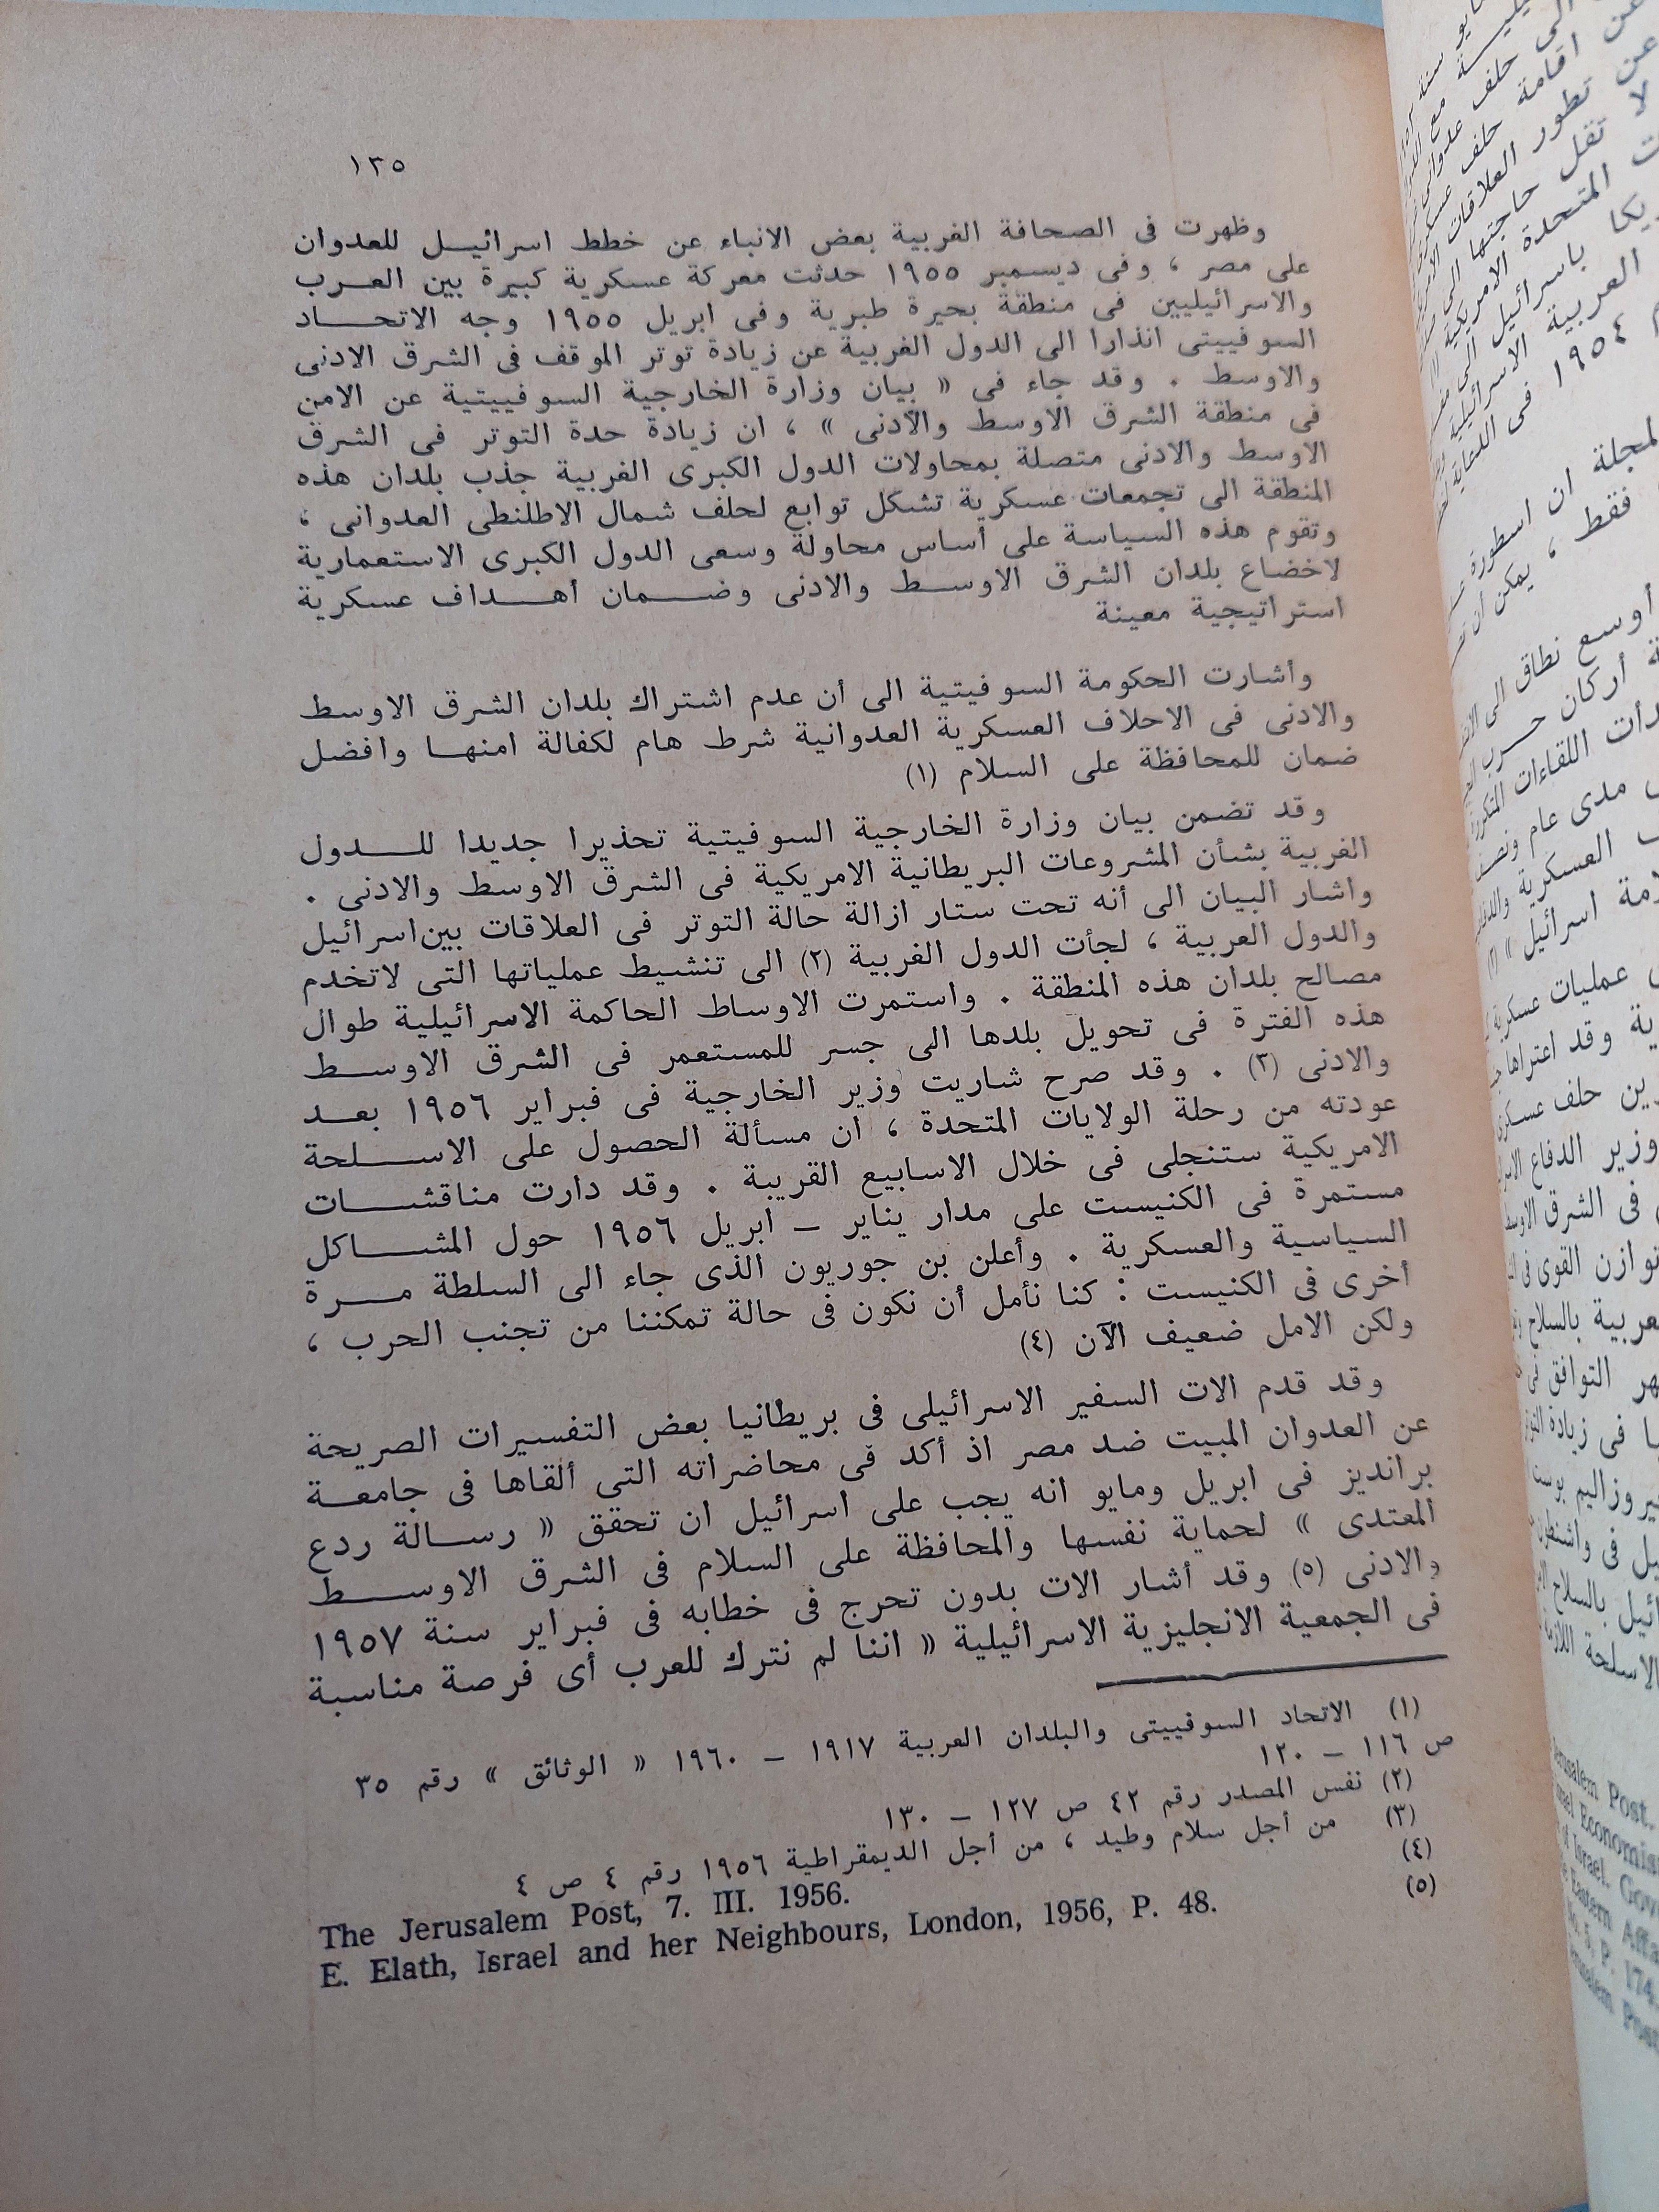 ١٣٥
وظهرت فى الصحافة الغربية بعض الانباء عن خطط اسرائيل للعدوان
على مصر ، وفى ديسمبر ١٩٥٥ حدثت معركة عسكرية كبيرة بين العرب
والاسرائيليين فى منطقة بحيرة طبرية وفى ابريل ١٩٥٥ وجه الاتحاد
السوفييتى انذارا الى الدول الغربية عن زيادة توتر الموقف فى الشرق الادنى
والاوسط . وقد جاء فى « بيان وزارة الخارجية السوفييتية عن الامن
فى منطقة الشرق الاوسط والأدنى » ، ان زيادة حدة التوتر فى الشرق
الاوسط والادنى متصلة بمحاولات الدول الكبرى الغربية جذب بلدان هذه
المنطقة الى تجمعات عسكرية تشكل توابع لحلف شمال الاطلنطى العدوانى ،
وتقوم هذه السياسة على أساس محاولة وسعى الدول الكبرى الاستعمارية
لاخضاع بلدان الشرق الاوسط والادنى وضمان أهداف عسكرية
استراتيجية معينة
وأشارت الحكومة السوفيتية الى أن عدم اشتراك بلدان الشرق الاوسط
والادنى فى الاحلاف العسكرية العدوانية شرط هام لكفالة امنها وافضل
ضمان للمحافظة على السلام (١)
وقد تضمن بيان وزارة الخارجية السوفيتية تحذيرا جديدا للدول
الغربية بشأن المشروعات البريطانية الامريكية فى الشرق الاوسط والادنى .
واشار البيان الى أنه تحت ستار ازالة حالة التوتر فى العلاقات بين اسرائيل
والدول العربية ، لجأت الدول الغربية (٢) الى تنشيط عملياتها التى لاتخدم
مصالح بلدان هذه المنطقة . واستمرت الاوساط الحاكمة الاسرائيلية طوال
هذه الفترة فى تحويل بلدها الى جسر للمستعمر فى الشرق الاوسط
والادنى (٣) . وقد صرح شاريت وزير الخارجية فى فبراير ١٩٥٦ بعد
عودته من رحلة الولايات المتحدة ، ان مسألة الحصول على الاسلحة
الامريكية ستنجلى فى خلال الاسابيع القريبة . وقد دارت مناقشات
مستمرة فى الكنيست على مدار يناير – ابريل ١٩٥٦ حول المشاكل
السياسية والعسكرية . وأعلن بن جوريون الذى جاء الى السلطة مرة
أخرى فى الكنيست : كنا نأمل أن نكون فى حالة تمكننا من تجنب الحرب ،
ولكن الامل ضعيف الآن (٤)
وقد قدم الات السفير الاسرائيلى فى بريطانيا بعض التفسيرات الصريحة
عن العدوان المبيت ضد مصر اذ أكد فى محاضراته التى ألقاها فى جامعة
برانديز فى ابريل ومايو انه يجب على اسرائيل ان تحقق « رسالة ردع
المعتدى » لحماية نفسها والمحافظة على السلام فى الشرق الاوسط
والادنى (٥) وقد أشار الات بدون تحرج فى خطابه فى فبراير سنة ١٩٥٧
فى الجمعية الانجليزية الاسرائيلية « اننا لم نترك للعرب أى فرصة مناسبة
(١) الاتحاد السوفييتى والبلدان العربية ١٩١٧ – ١٩٦٠ « الوثائق » رقم ٣٥
ص ١١٦ – ١٢٠
(٢) نفس المصدر رقم ٤٢ ص ١٢٧ – ١٣٠
(٣) من أجل سلام وطيد ، من أجل الديمقراطية ١٩٥٦ رقم ٤ ص ٤
(٤) The Jerusalem Post, 7. III. 1956.
(٥) E. Elath, Israel and her Neighbours, London, 1956, P. 48.